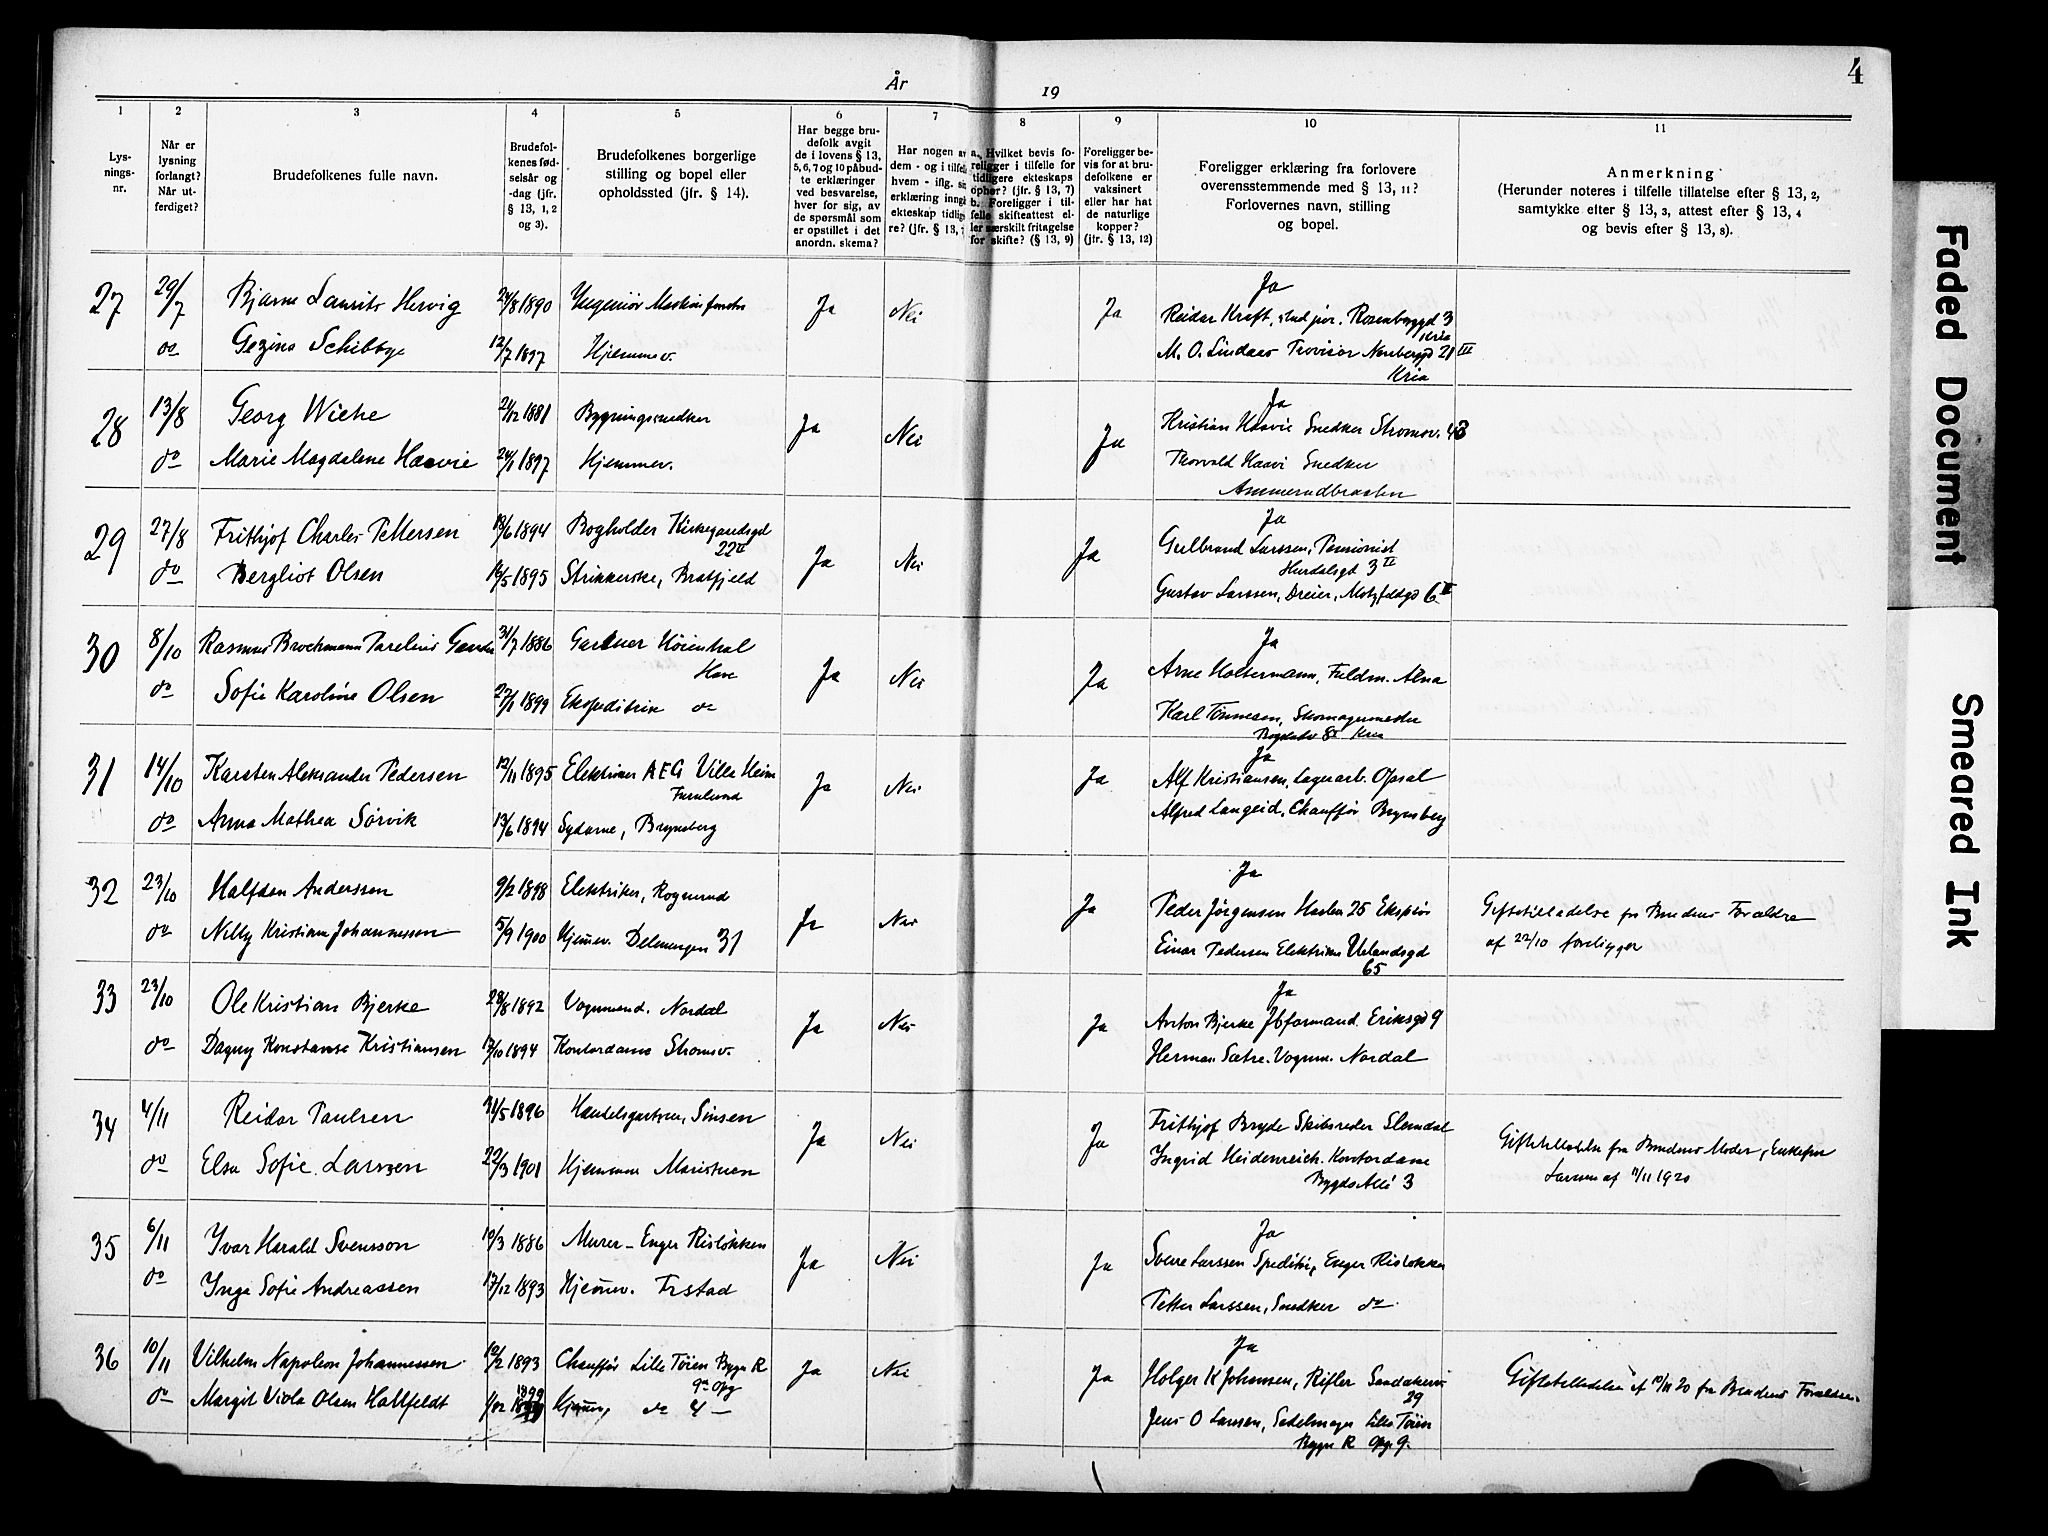 4
År 19
1 2 3 4 5 6 7 8 9 10 11
Lys-
nings-
nr.
Når er
lysning
forlangt?
Når ut-
ferdiget?
Brudefolkenes fulle navn.
Brudefol-
kenes fød-
selsår og
-dag (jfr.
§ 13, 1, 2
og 3).
Brudefolkenes borgerlige
stilling og bopel eller
opholdssted (jfr. § 14).
Har begge bru-
defolk avgit
de i lovens § 13,
5, 6, 7 og 10 påbud-
te erklæringer
ved besvarelse,
hver for sig, av
de spørsmål som
er opstillet i det
anordn. skema?
Har nogen a
dem - og i tilfelle
hvem - iflg. si
erklæring inngå
ekteskap tidlig
re? (jfr. § 13,
a. Hvilket bevis fo-
religger i tilfelle for
tidligere ekteskaps
ophør? (jfr. § 13, 7)
b. Foreligger i til-
felle skifteattest el-
ler særskilt fritagelse
for skifte? (§ 13, 9)
Foreligger be-
vis for at bru-
defolkene er
vaksinert
eller har hat
de naturlige
kopper?
(jfr. § 13, 12)
Foreligger erklæring fra forlovere
overensstemmende med § 13, 11?
Forlovernes navn, stilling
og bopel.
Anmerkning
(Herunder noteres i tilfelle tillatelse efter § 13, 2,
samtykke efter § 13, 3, attest efter § 13, 4
og bevis efter § 13, 8).
27 29/7 Bjarne Laurits Hervig 24/8 1890 Ingeniør Ja Nei Ja Ja
Reidar Kraft, stud jur. 3
Kria
do Gezina Schibbye 12/7 1897 Hjemmev. M. O. Lindaas 21 III
Kria
28 13/8 Georg Wiehe 1881 Bygningssnedker Ja Nei Ja Ja
Kristian Haavie Snedker Strømsv. 43
do Marie Magdalene Haavie 1897 Hjemmev. Thorvald Haavi Snedker
Ammerudbraaten
29 27/8 Frithjof Charles Pettersen 18/6 1894 Bogholder Kirkegaardsgd
22 II Ja Nei Ja Ja
Gulbrand Larssen, Pensionist
Hurdalsgd 3 II
do Bergliot Olsen 16/5 1895 Strikkerske, Bratfjeld Gustav Larssen, Dreier, Motzfeldgd 6 II
30 8/10 Rasmus Brochmann Parelius 31/7 1886 Gartner Høienhal
Have Ja Nei Ja Ja
Arne Holtermann, Fuldm. Alna
do Sofie Karoline Olsen 22/1 1899 Ekspeditrise do Karl Tønnesen, Skomagermester
31 14/10 Karsten Aleksander Pedersen 12/11 1895 Elektriker AEG Villa Heim
Furulund Ja Nei Ja Ja
Alf Kristiansen, Lagerarb. Opsal
do Anna Mathea Sørvik 13/6 1894 Sydame, Brynsberg Alfred Langeid, Chauffør Brynsberg
32 23/10 Halfdan Anderssen 9/2 1898 Elektriker, Rognerud Ja Nei Ja Ja
Peder Jørgensen
do Nelly Kristiane Johannessen 5/9 1900 Hjemmev. 31 Einar Pedersen Elektriker Uelandsgd
65
Giftetilladelse fra Brudens Forældre
af 22/10 foreligger
33 23/10 Ole Kristian Bjerke 28/8 1892 Vognmand. Nordal Ja Nei Ja Ja
Anton Bjerke Jbformand. Eriksgd 9
do Dagny Konstanse Kristiansen 17/10 1894 Kontordame Strømsv. Herman Sætre. Vognm. Nordal
34 4/11 Reidar Paulsen 31/5 1896 Handelsgartner, Sinsen Ja Nei Ja
Frithjof Bryde Skibsreder Slemdal
do Elsa Sofie Larssen 22/3 1901 Hjemme Ingrid Heidenreich. Kontordame
Bygdø Allé 3
Giftetilladelse fra Brudens Moder, Enkefru
Larssen af 1/11 1920
35 6/11 Yvar Harald Svensson 10/3 1886 Murer - Enger Risløkken Ja Nei Ja Ja
Sverre Larssen Enger Risløkken
do Inga Sofie Andreassen 17/12 1893 Hjemmev. Petter Larssen, Snedker do
36 10/11 Vilhelm Napoleon Johannessen 10/2 1893 Chauffør Lille Tøien Bygn R
9 Opg Ja Nei Ja Ja
Holger K Johansen, Rifler Sandakerv
29
do Margit Viola Olsen Hallfeldt 1/12 1899 Hjemmev, do 4 Jens O Larssen, Sadelmager Lille Tøien
Bygn R Opg. 9.
Giftetilladelse af 10/11 20 fra Brudens Forældre.
Faded Document
Smeared Ink